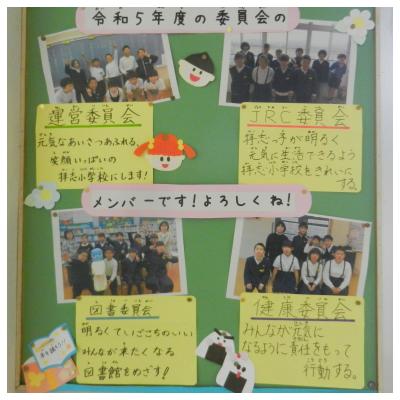 令和5年度の委員会の
運営委員会
元気なあいさつあふれる、
笑顔いっぱいの
拝志小学校にします!
JRC委員会
拝志っ子が明るく
元気に生活できるよう
拝志小学校をきれいに
する。
メンバーです!よろしくね!
図書委員会
明るくていごこちのいい
みんなが来たくなる
図書館をめざす!
健康委員会
みんなが元気に
なるように責任をもって
行動する。